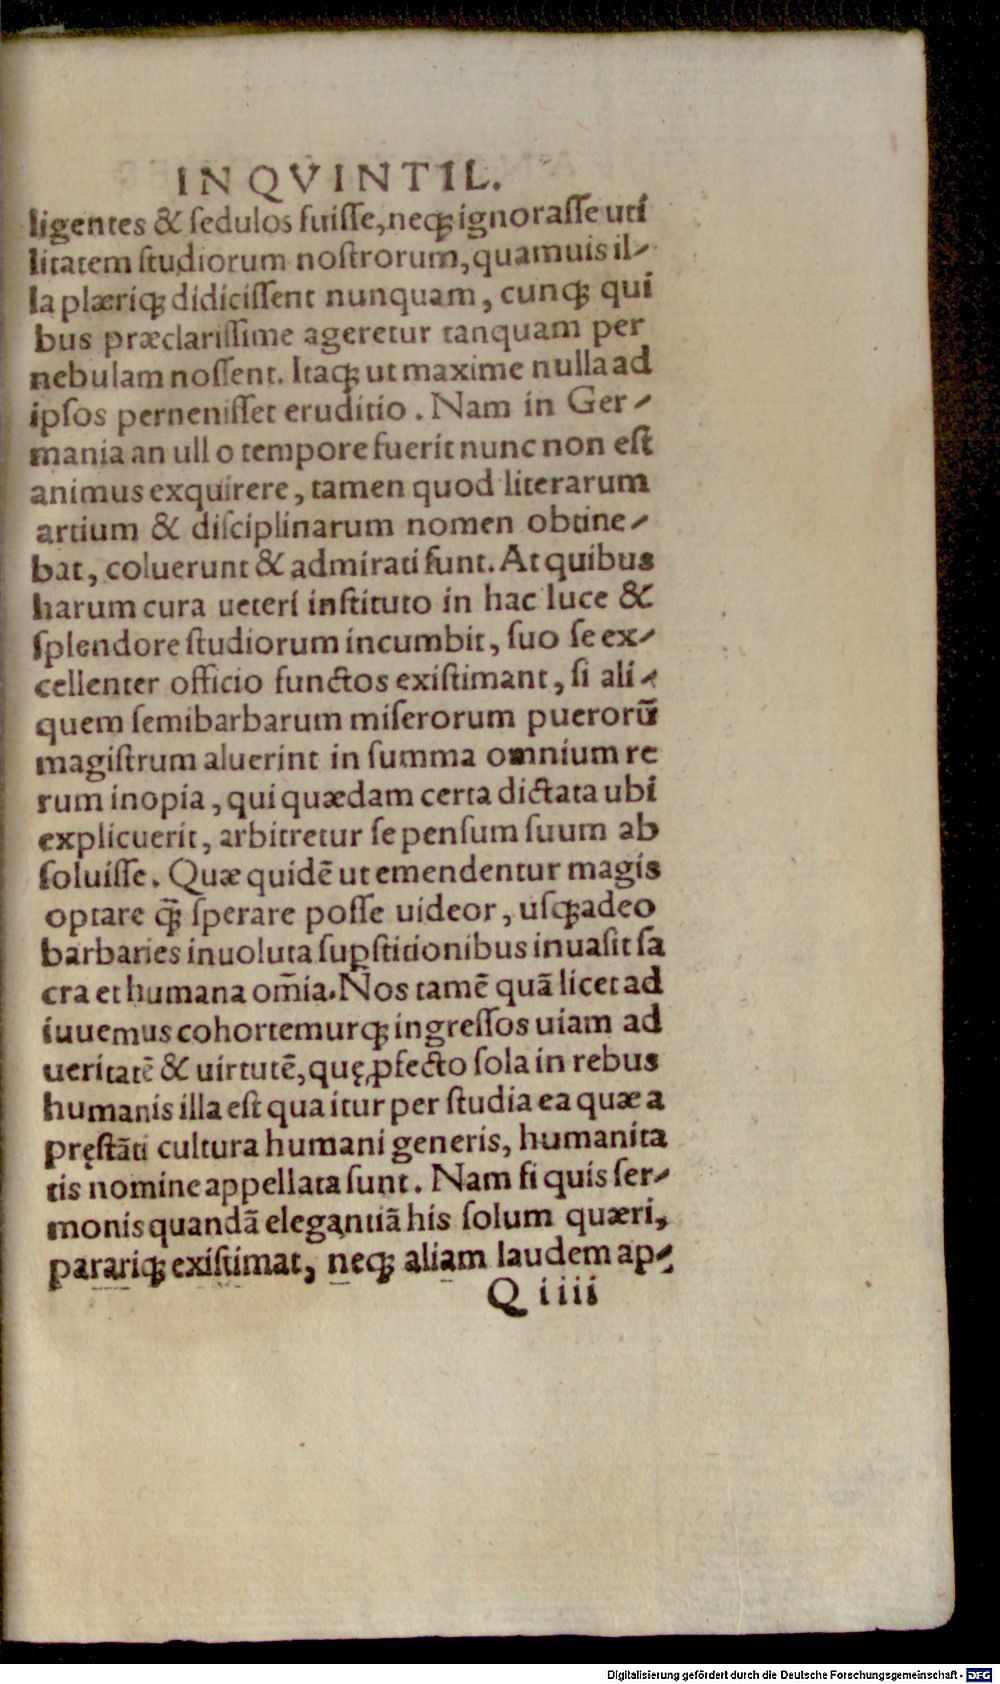 IN QVINTIL.
ligentes & ſedulos fuiſſe, neqꝫ ignoraſſe uti
litatem ſtudiorum noſtrorum, quamuis il-
la plæriqꝫ didiciſſent nunquam, cunqꝫ qui
bus præclariſſime ageretur tanquam per
nebulam noſſent. Itaqꝫ ut maxime nulla ad
ipſos perueniſſet eruditio. Nam in Ger-
mania an ull o tempore fuerit nunc non eſt
animus exquirere, tamen quod literarum
artium & diſciplinarum nomen obtine-
bat, coluerunt & admirati ſunt. At quibus
harum cura ueteri inſtituto in hac luce &
ſplendore ſtudiorum incumbit, ſuo ſe ex-
cellenter officio functos exiſtimant, ſi ali-
quem ſemibarbarum miſerorum puerorū
magiſtrum aluerint in ſumma omnium re
rum inopia, qui quædam certa dictata ubi
explicuerit, arbitretur ſe penſum ſuum ab
ſoluiſſe. Quæ quidē ut emendentur magis
optare q̄ꝫ ſperare poſſe uideor, uſqꝫadeo
barbaries inuoluta ſuꝑſtitionibus inuaſit ſa
cra et humana om̄ia. Nos tamē quā licet ad
iuuemus cohortemurqꝫ ingreſſos uiam ad
ueritatē & uirtutē, quę ꝓfecto ſola in rebus
humanis illa eſt qua itur per ſtudia ea quæ a
pręſtāti cultura humani generis, humanita
tis nomine appellata ſunt. Nam ſi quis ſer-
monis quandā elegantiā his ſolum quæri,
parariqꝫ exiſtimat, neqꝫ aliam laudem ap-
Q iiii
Digitalisierung gefördert durch die Deutsche Forschungsgemeinschaft - DFG